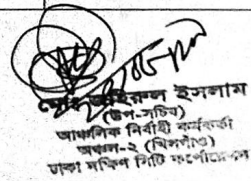 ইসলাম
(উপ-সচিব)
আঞ্চলিক নির্বাহী কর্মকর্তা
অঞ্চল-২ (খিলগাঁও)
ঢাকা দক্ষিণ সিটি কর্পোরেশন